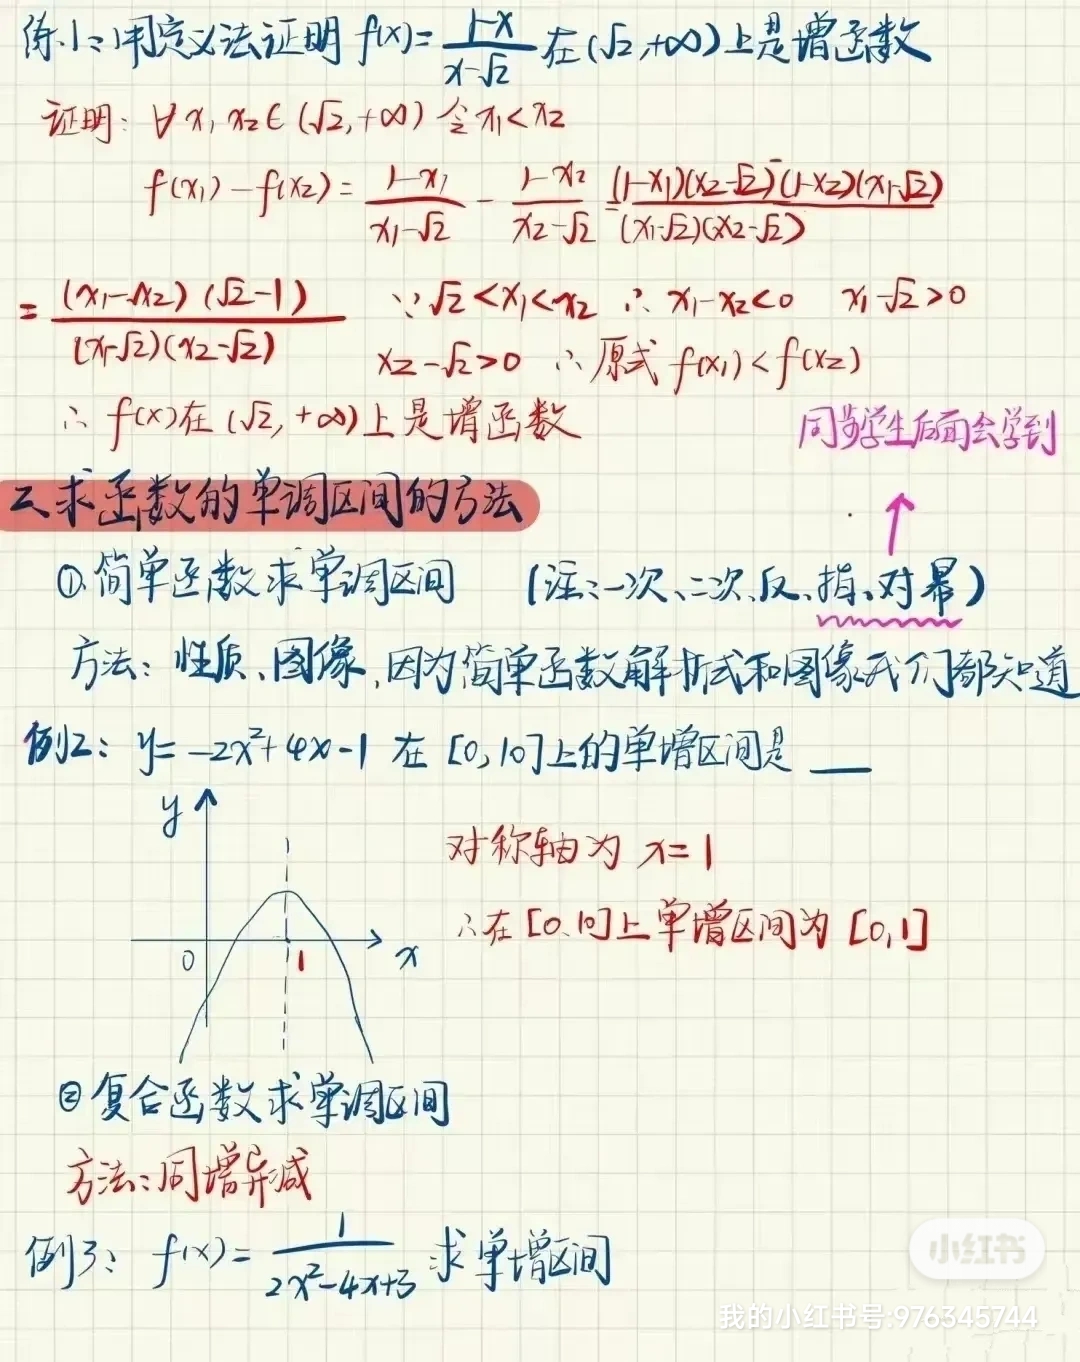 练1:用定义法证明 f(x)=\frac{1-x}{x-√2} 在(√2,+∞)上是增函数
证明:∀x₁,x₂∈(√2,+∞) 令x₁<x₂
f(x₁)-f(x₂)=\frac{1-x₁}{x₁-√2}-\frac{1-x₂}{x₂-√2}=\frac{(1-x₁)(x₂-√2)-(1-x₂)(x₁-√2)}{(x₁-√2)(x₂-√2)}
=\frac{(x₁-x₂)(√2-1)}{(x₁-√2)(x₂-√2)} ∵√2<x₁<x₂ ∴x₁-x₂<0 x₁-√2>0
x₂-√2>0 ∴原式 f(x₁)<f(x₂)
∴f(x)在(√2,+∞)上是增函数
同学生后面会学到
二求函数的单调区间的方法
①.简单函数求单调区间 (注:一次、二次、反、指、对幂)
方法:性质、图像,因为简单函数解析式和图像我们都知道
例2:y=-2x²+4x-1 在[0,10]上的单增区间是 ___
y
对称轴为 x=1
∴在[0.10]上单增区间为[0,1]
0 1 x
②复合函数求单调区间
方法:同增异减
例3:f(x)=\frac{1}{2x²-4x+3} 求单增区间
小红书
我的小红书号:976345744